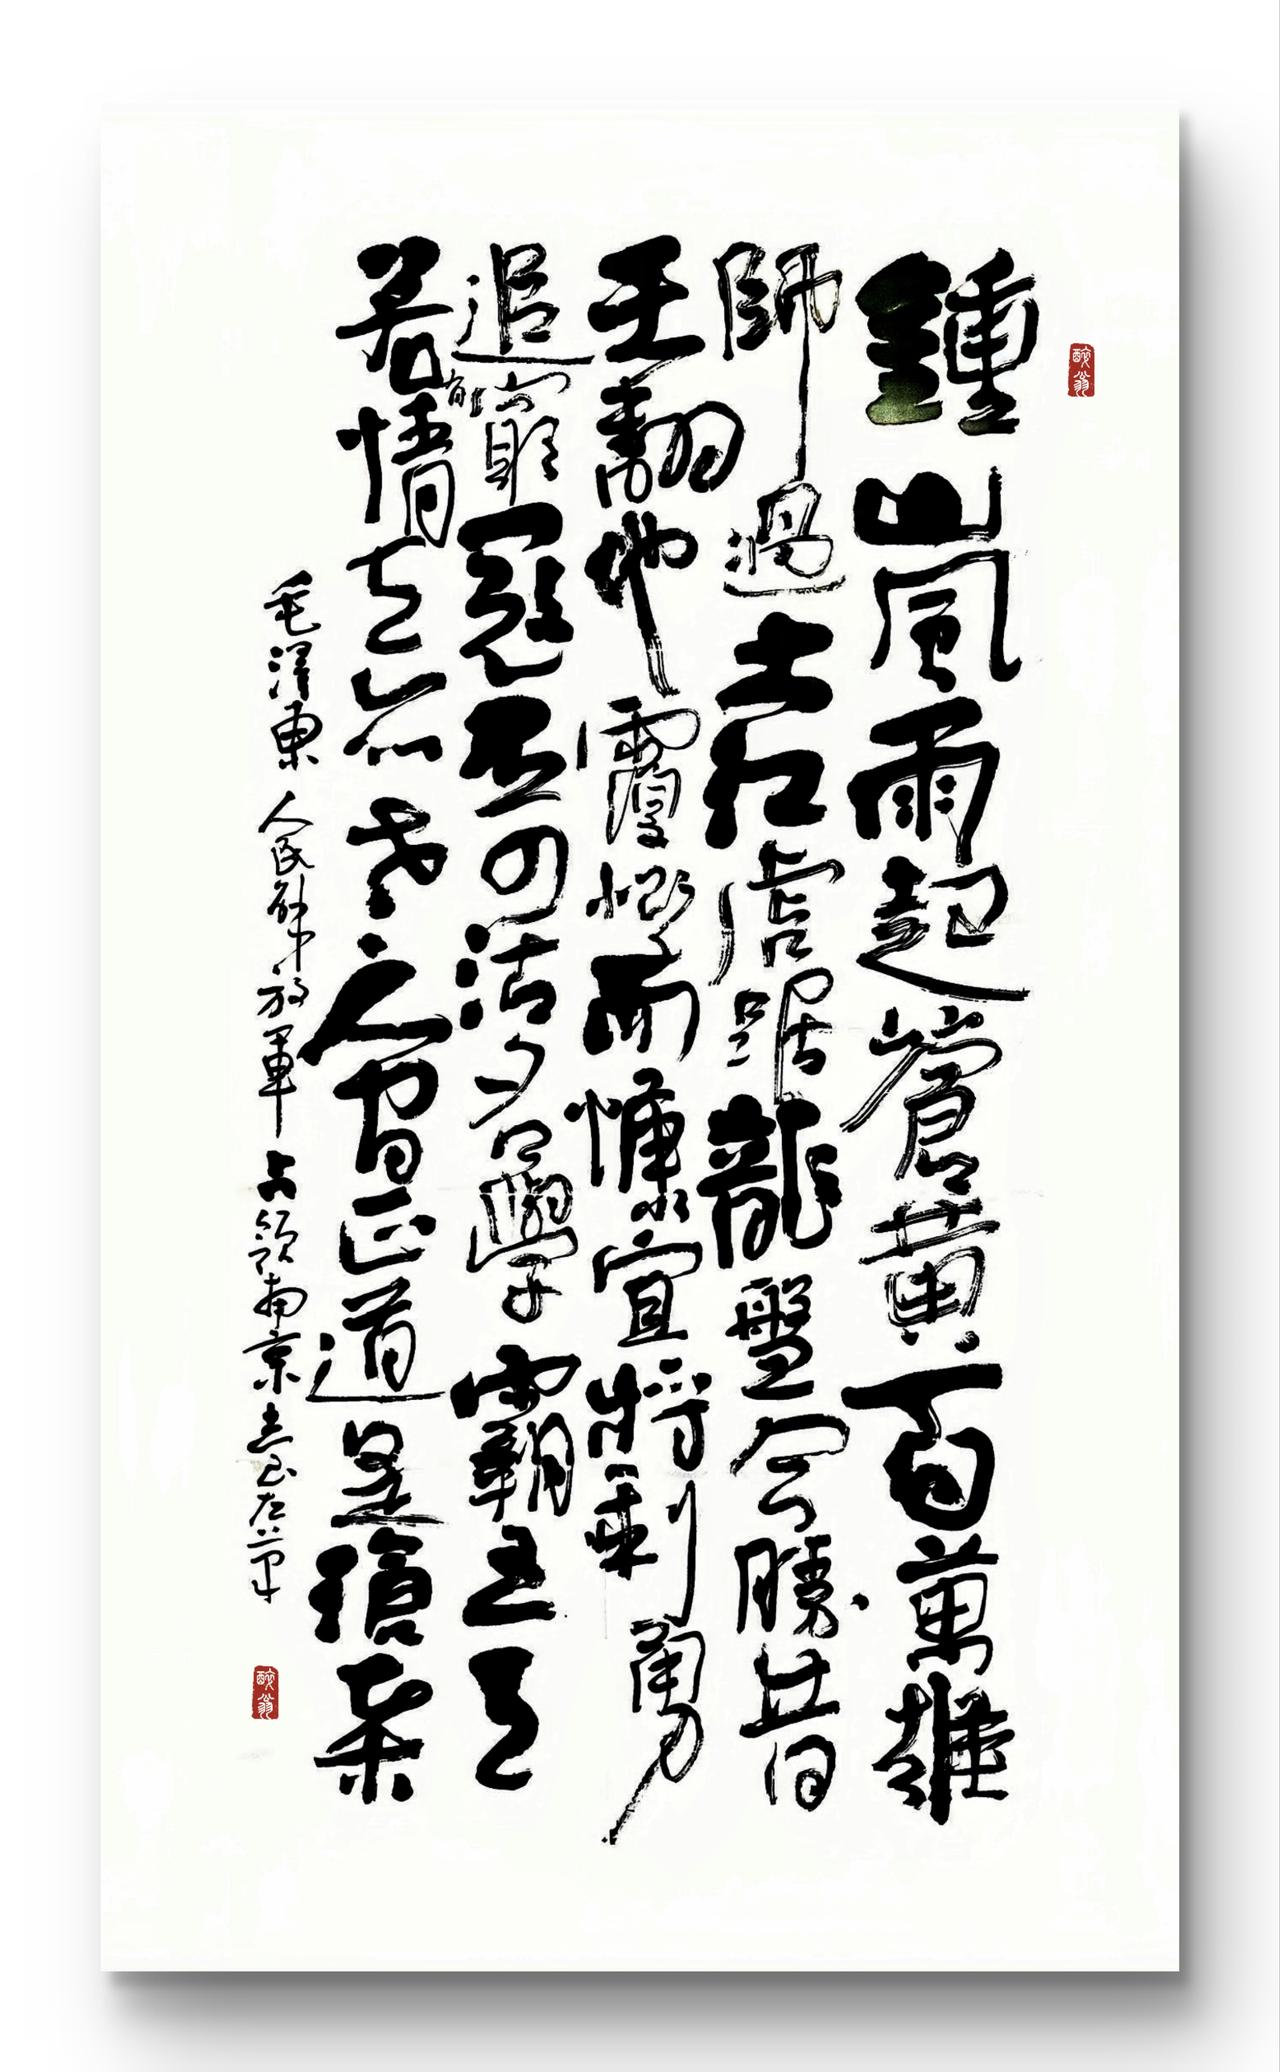 醉翁
鍾山風雨起蒼黄百萬雄
師過大江虎踞龍盤今勝昔
天翻地覆慨而慷宜將剩勇
追窮寇不可沽名學霸王天
若有情天亦老人間正道是滄桑
毛澤東 人民解放軍占領南京 左筆
醉翁